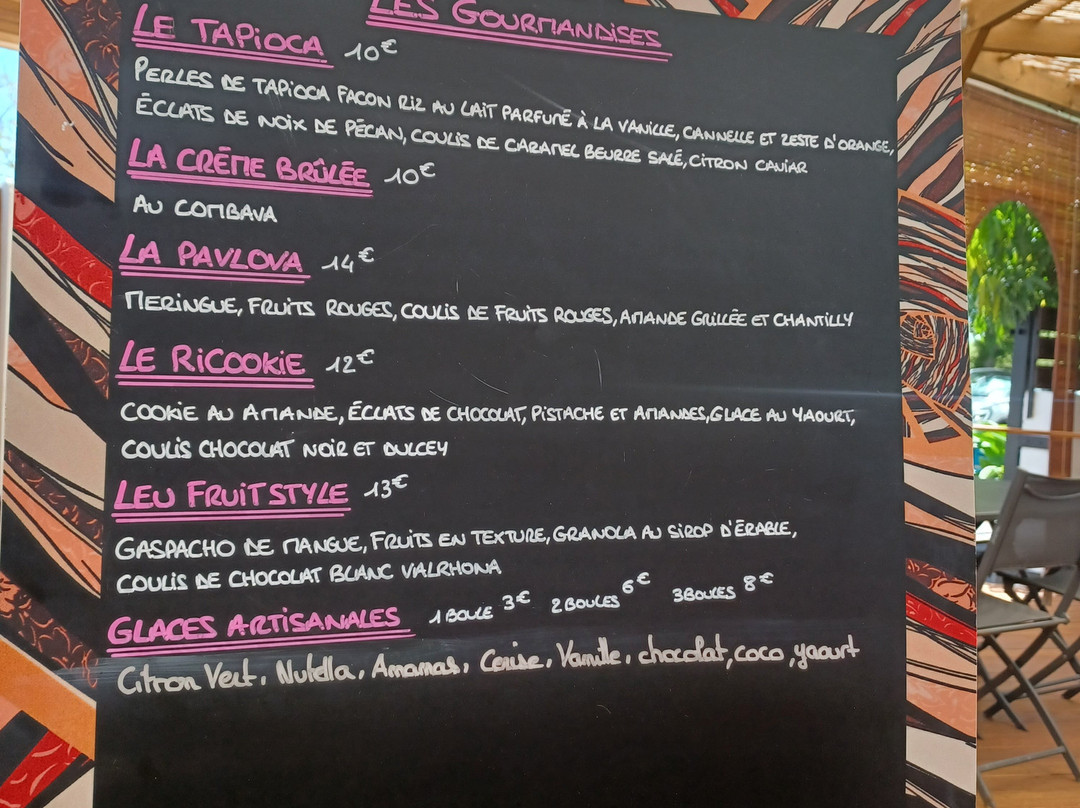 LES GOURMANDISES
LE TAPIOCA 10€
PERLES DE TAPIOCA FACON RIZ AU LAIT PARFUMÉ À LA VANILLE, CANNELLE ET ZESTE D'ORANGE,
ÉCLATS DE NOIX DE PÉCAN, COULIS DE CARAMEL BEURRE SALÉ, CITRON CAVIAR
LA CRÈME BRÛLÉE 10€
AU COMBAVA
LA PAVLOVA 14€
MERINGUE, FRUITS ROUGES, COULIS DE FRUITS ROUGES, AMANDE GRILLÉE ET CHANTILLY
LE RICOOKIE 12€
COOKIE AU AMANDE, ÉCLATS DE CHOCOLAT, PISTACHE ET AMANDES, GLACE AU YAOURT,
COULIS CHOCOLAT NOIR ET DULCEY
LEU FRUITSTYLE 13€
GASPACHO DE MANGUE, FRUITS EN TEXTURE, GRANOLA AU SIROP D'ÉRABLE,
COULIS DE CHOCOLAT BLANC VALRHONA
GLACES ARTISANALES 1 BOULE 3€ 2 BOULES 6€ 3 BOULES 8€
Citron Vert, Nutella, Ananas, Cerise, Vanille, chocolat, coco, yaourt